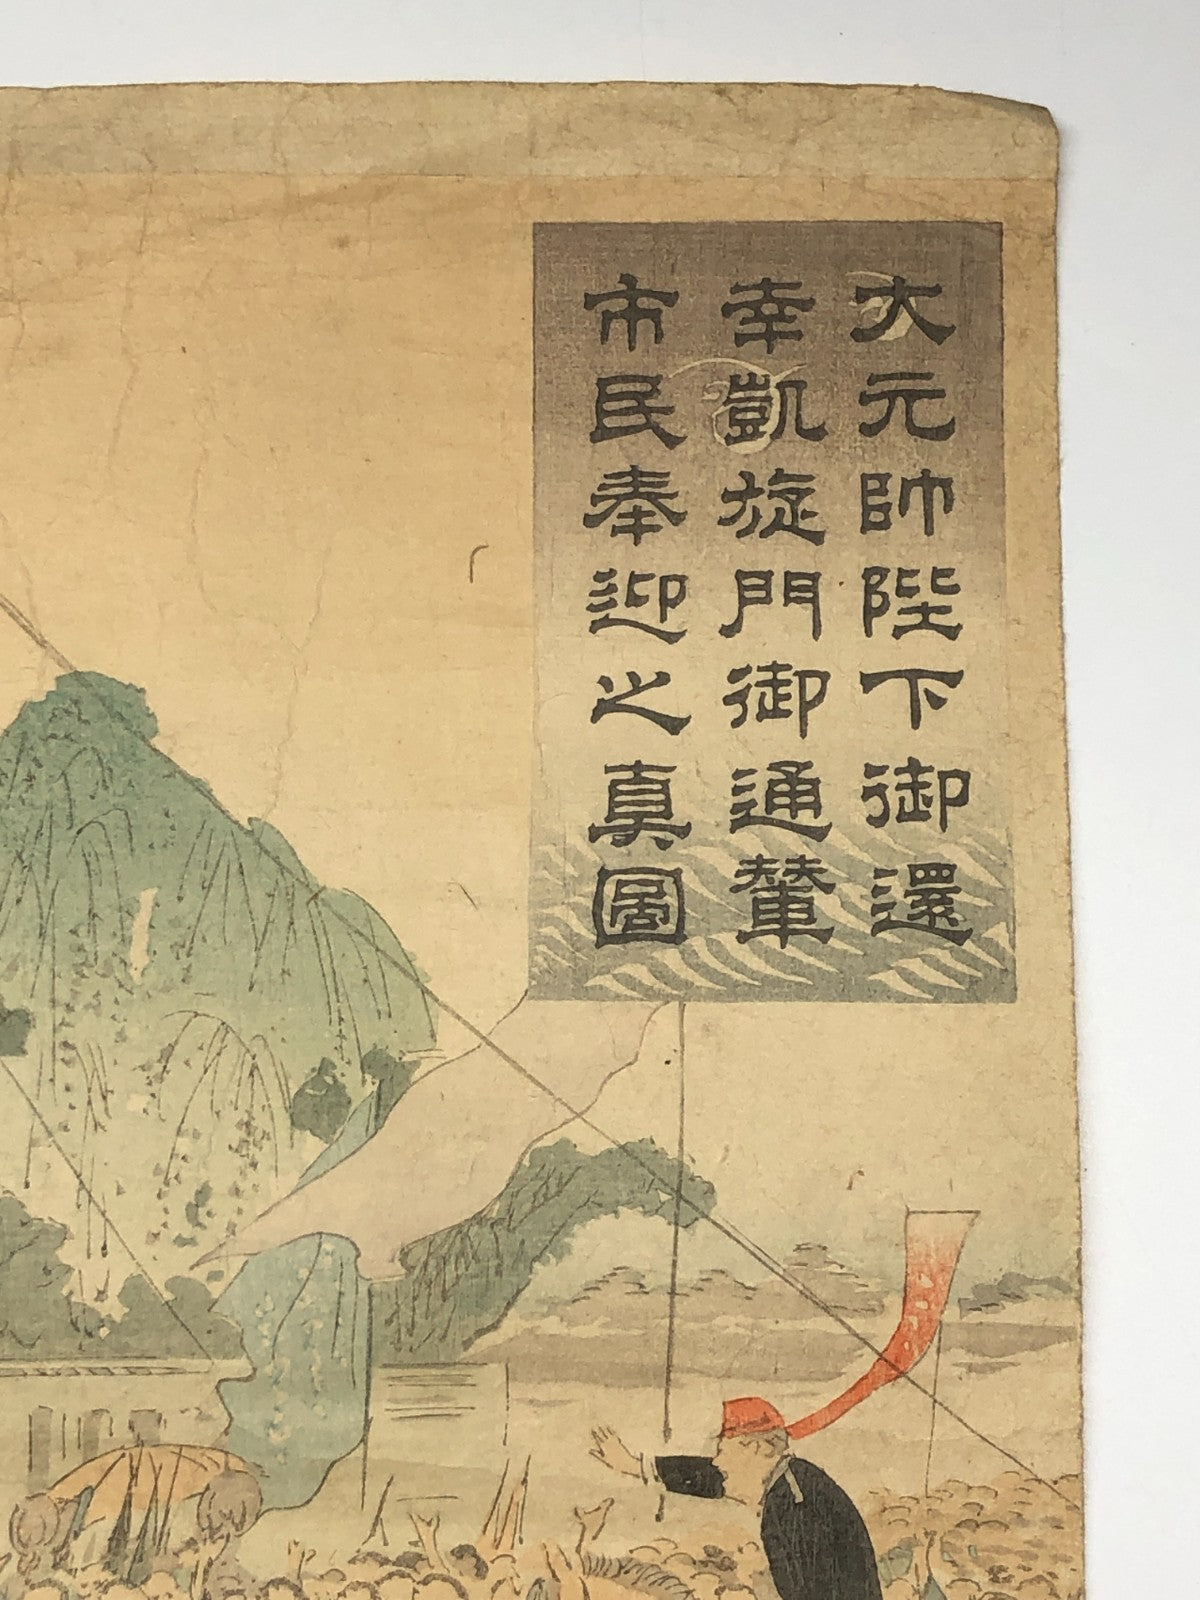 大元帥陛下御還
幸凱旋門御通輦
市民奉迎之真圖